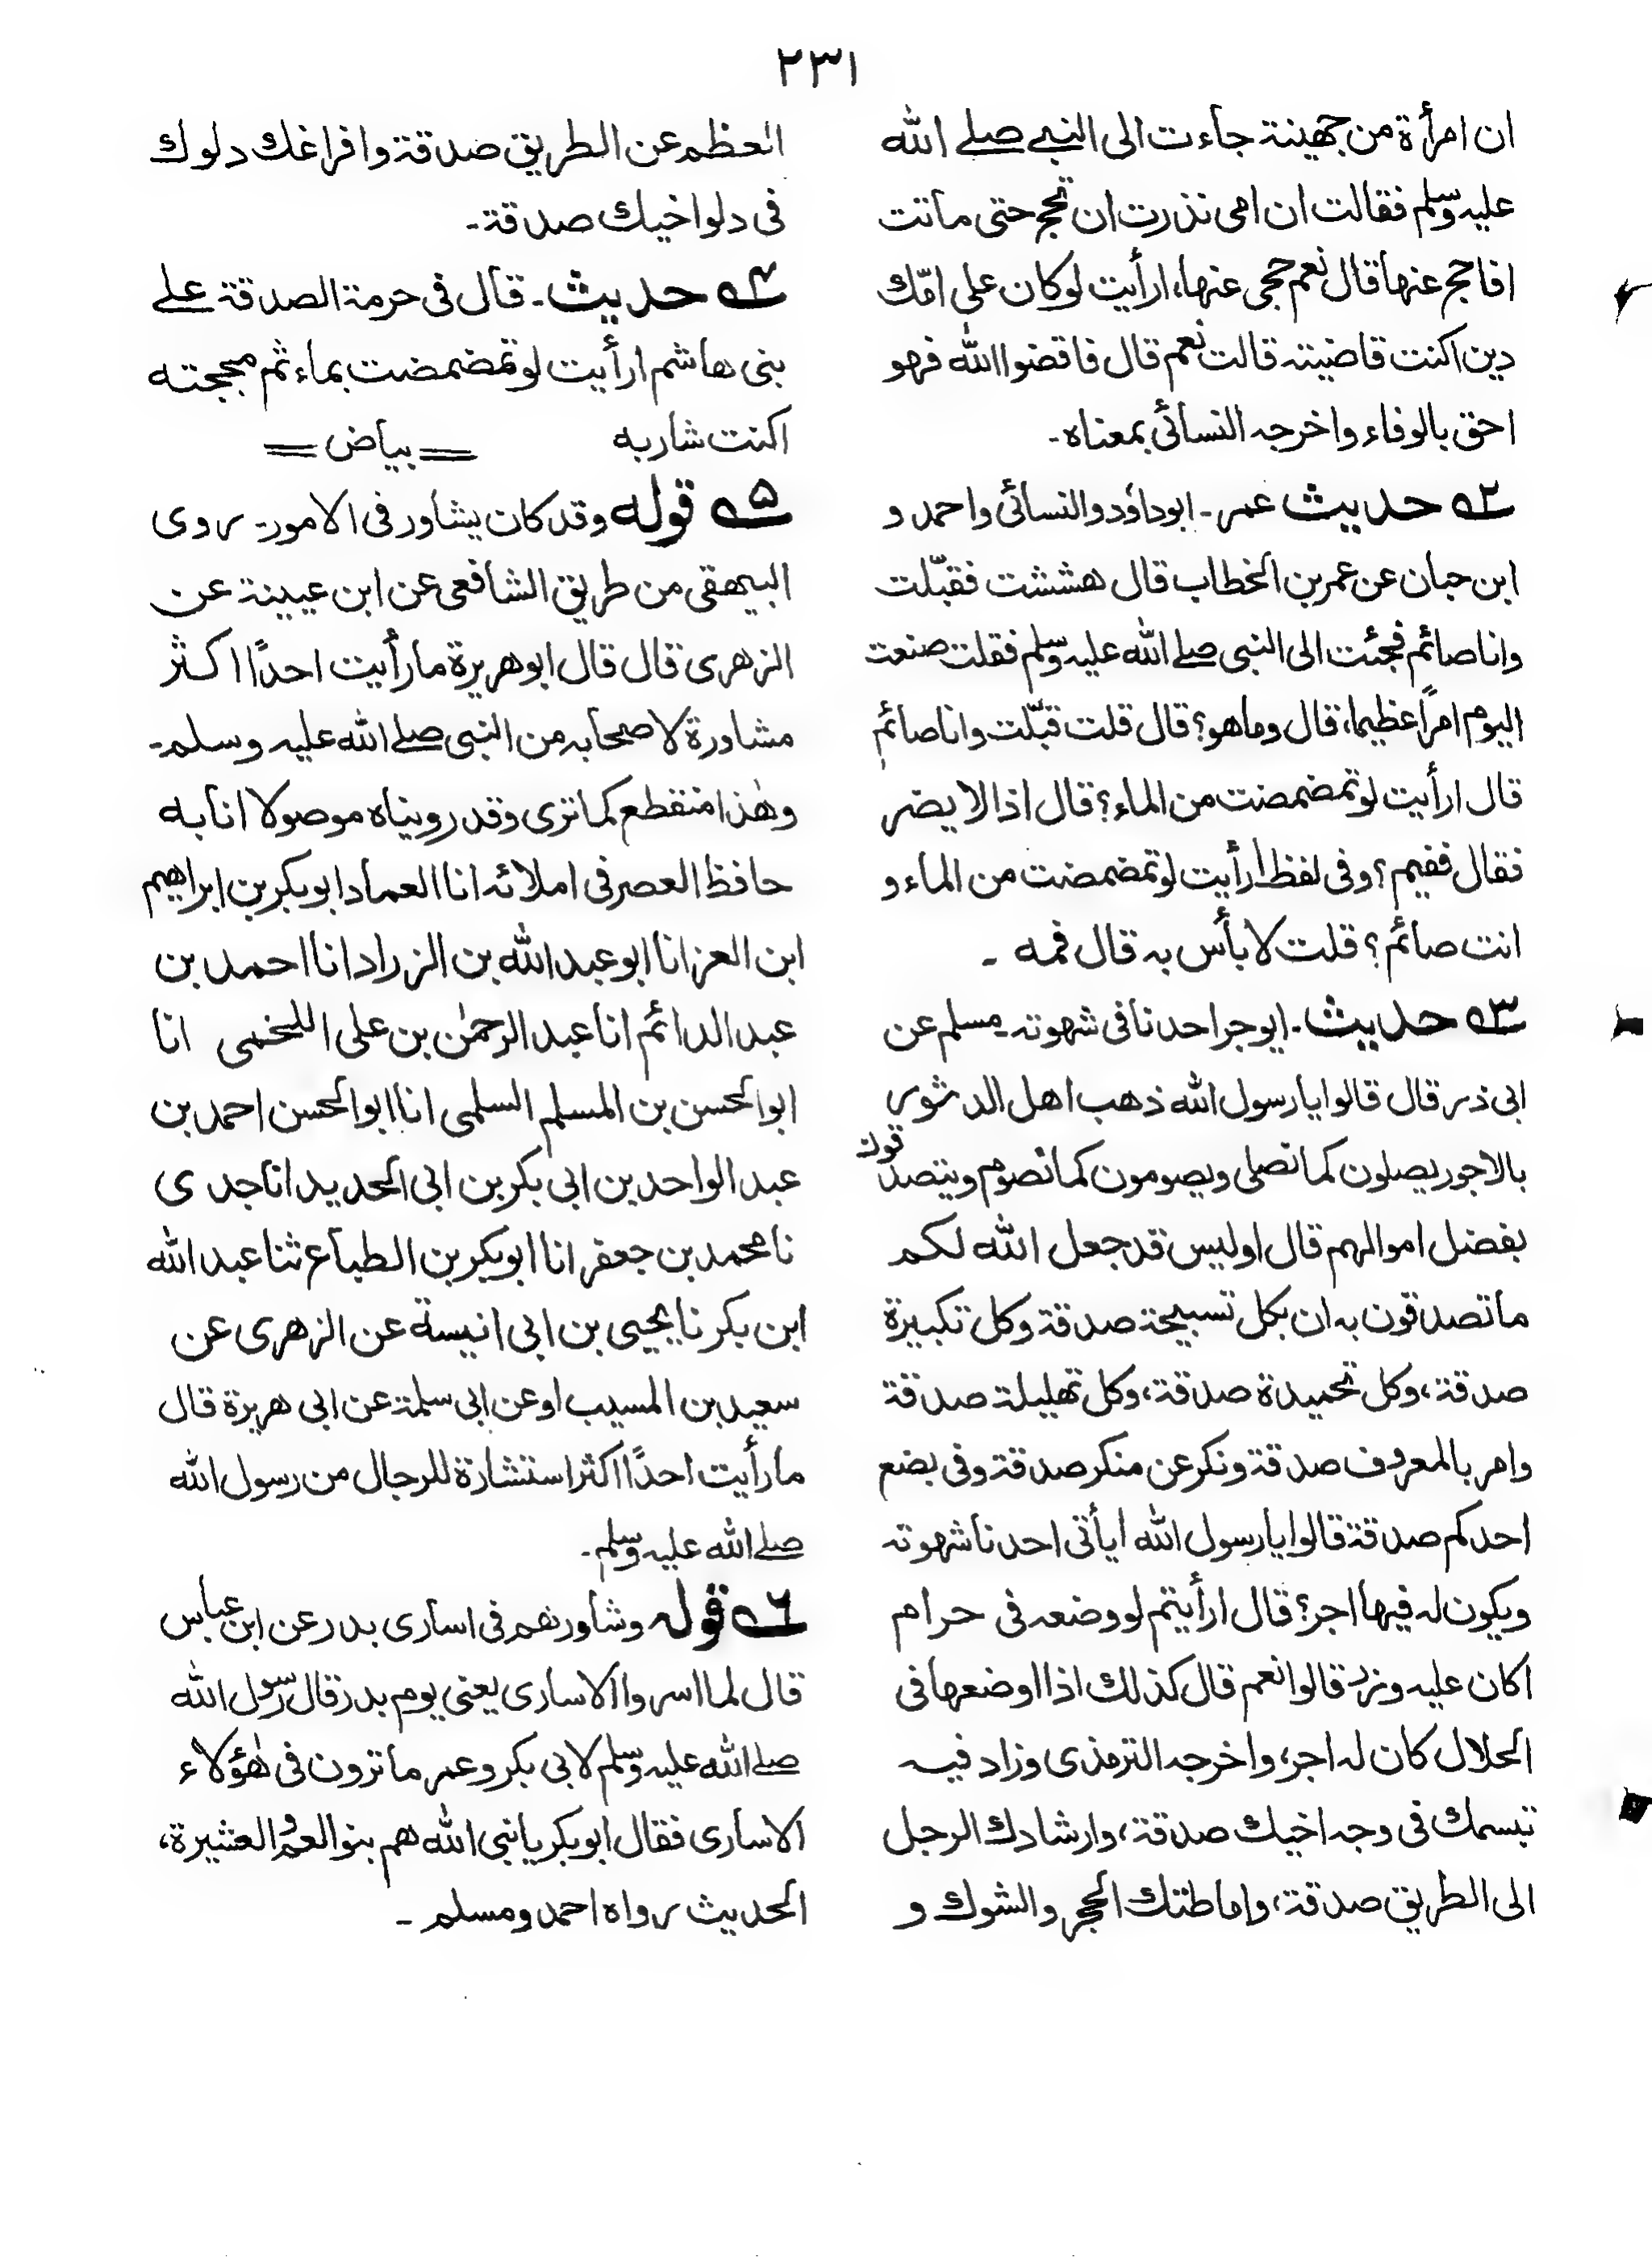 ٢٣١
ان امرأة من جهينة جاءت الى النبي صلے الله
عليه وسلم فقالت ان امى نذرت ان تحج حتى ماتت
افاحج عنها قال نعم حجى عنها، ارأيت لوكان على امّك
دين اكنت قاضيته قالت نعم قال فاقضوا الله فهو
احق بالوفاء واخرجه النسائى بمعناه۔
٢ے حديث عمر۔ ابوداؤد والنسائى واحمد و
ابن حبان عن عمر بن الخطاب قال هششت فقبّلت
وانا صائم فجئت الى النبى صلے الله عليه وسلم فقلت صنعت
اليوم امرًا عظيما، قال وماهو؟ قال قلت قبّلت وانا صائم
قال ارأيت لو تمضمضت من الماء؟ قال اذا لا يضر
فقال ففيم؟ وفى لفظ ارأيت لو تمضمضت من الماء و
انت صائم؟ قلت لا بأس به قال فمه ۔
٣ے حديث۔ ايوجر احدنا فى شهوته۔ مسلم عن
ابى ذر قال قالوا يارسول الله ذهب اهل الدثور
بالاجور يصلون كما نصلى ويصومون كما نصوم ويتصدقون
بفضل اموالهم قال اوليس قد جعل الله لكم
ما تصدقون به ان بكل تسبيحة صدقة وكل تكبيرة
صدقة، وكل تحميدة صدقة، وكل تهليلة صدقة
وامر بالمعروف صدقة ونكر عن منكر صدقة وفى بضع
احدكم صدقة قالوا يارسول الله ايأتى احدنا شهوته
ويكون له فيها اجر؟ قال ارأيتم لو وضعه فى حرام
اكان عليه وزر قالوا نعم قال كذلك اذا اوضعها فى
الحلال كان له اجر، واخرجه الترمذى وزاد فيه
تبسمك فى وجه اخيك صدقة، وارشادك الرجل
الى الطريق صدقة، واماطتك الحجر والشوك و
العظم عن الطريق صدقة وافراغك دلوك
فى دلو اخيك صدقة۔
٤ے حديث۔ قال فى حرمة الصدقة علے
بنى هاشم ارأيت لو تمضمضت بماء ثم مججته
اكنت شاربه = بياض =
٥ے قوله وقد كان يشاور فى الامور۔ روى
البيهقى من طريق الشافعى عن ابن عيينة عن
الزهرى قال قال ابوهريرة مارأيت احدًا اكثر
مشاورة لاصحابه من النبى صلے الله عليه وسلم۔
وهٰذا منقطع كما ترى وقد رويناه موصولا انا به
حافظ العصر فى املائه انا العماد ابوبكر بن ابراهيم
ابن العز انا ابو عبد الله بن الزراد انا احمد بن
عبد الدائم انا عبد الرحمٰن بن على اللخمى انا
ابوالحسن بن المسلم السلمى انا ابوالحسن احمد بن
عبد الواحد بن ابى بكر بن ابى الحديد انا جدى
نا محمد بن جعفر انا ابوبكر بن الطباع ثنا عبد الله
ابن بكر نا يحيى بن ابى انيسة عن الزهرى عن
سعيد بن المسيب او عن ابى سلمة عن ابى هريرة قال
مارأيت احدًا اكثر استشارة للرجال من رسول الله
صلے الله عليه وسلم۔
٦ے قوله وشاورهم فى اسارى بدر عن ابن عباس
قال لما اسروا الاسارى يعنى يوم بدر قال رسول الله
صلے الله عليه وسلم لابى بكر وعمر ما ترون فى هٰؤلاء
الاسارى فقال ابوبكر يا نبى الله هم بنو العم والعشيرة،
الحديث رواه احمد ومسلم ۔